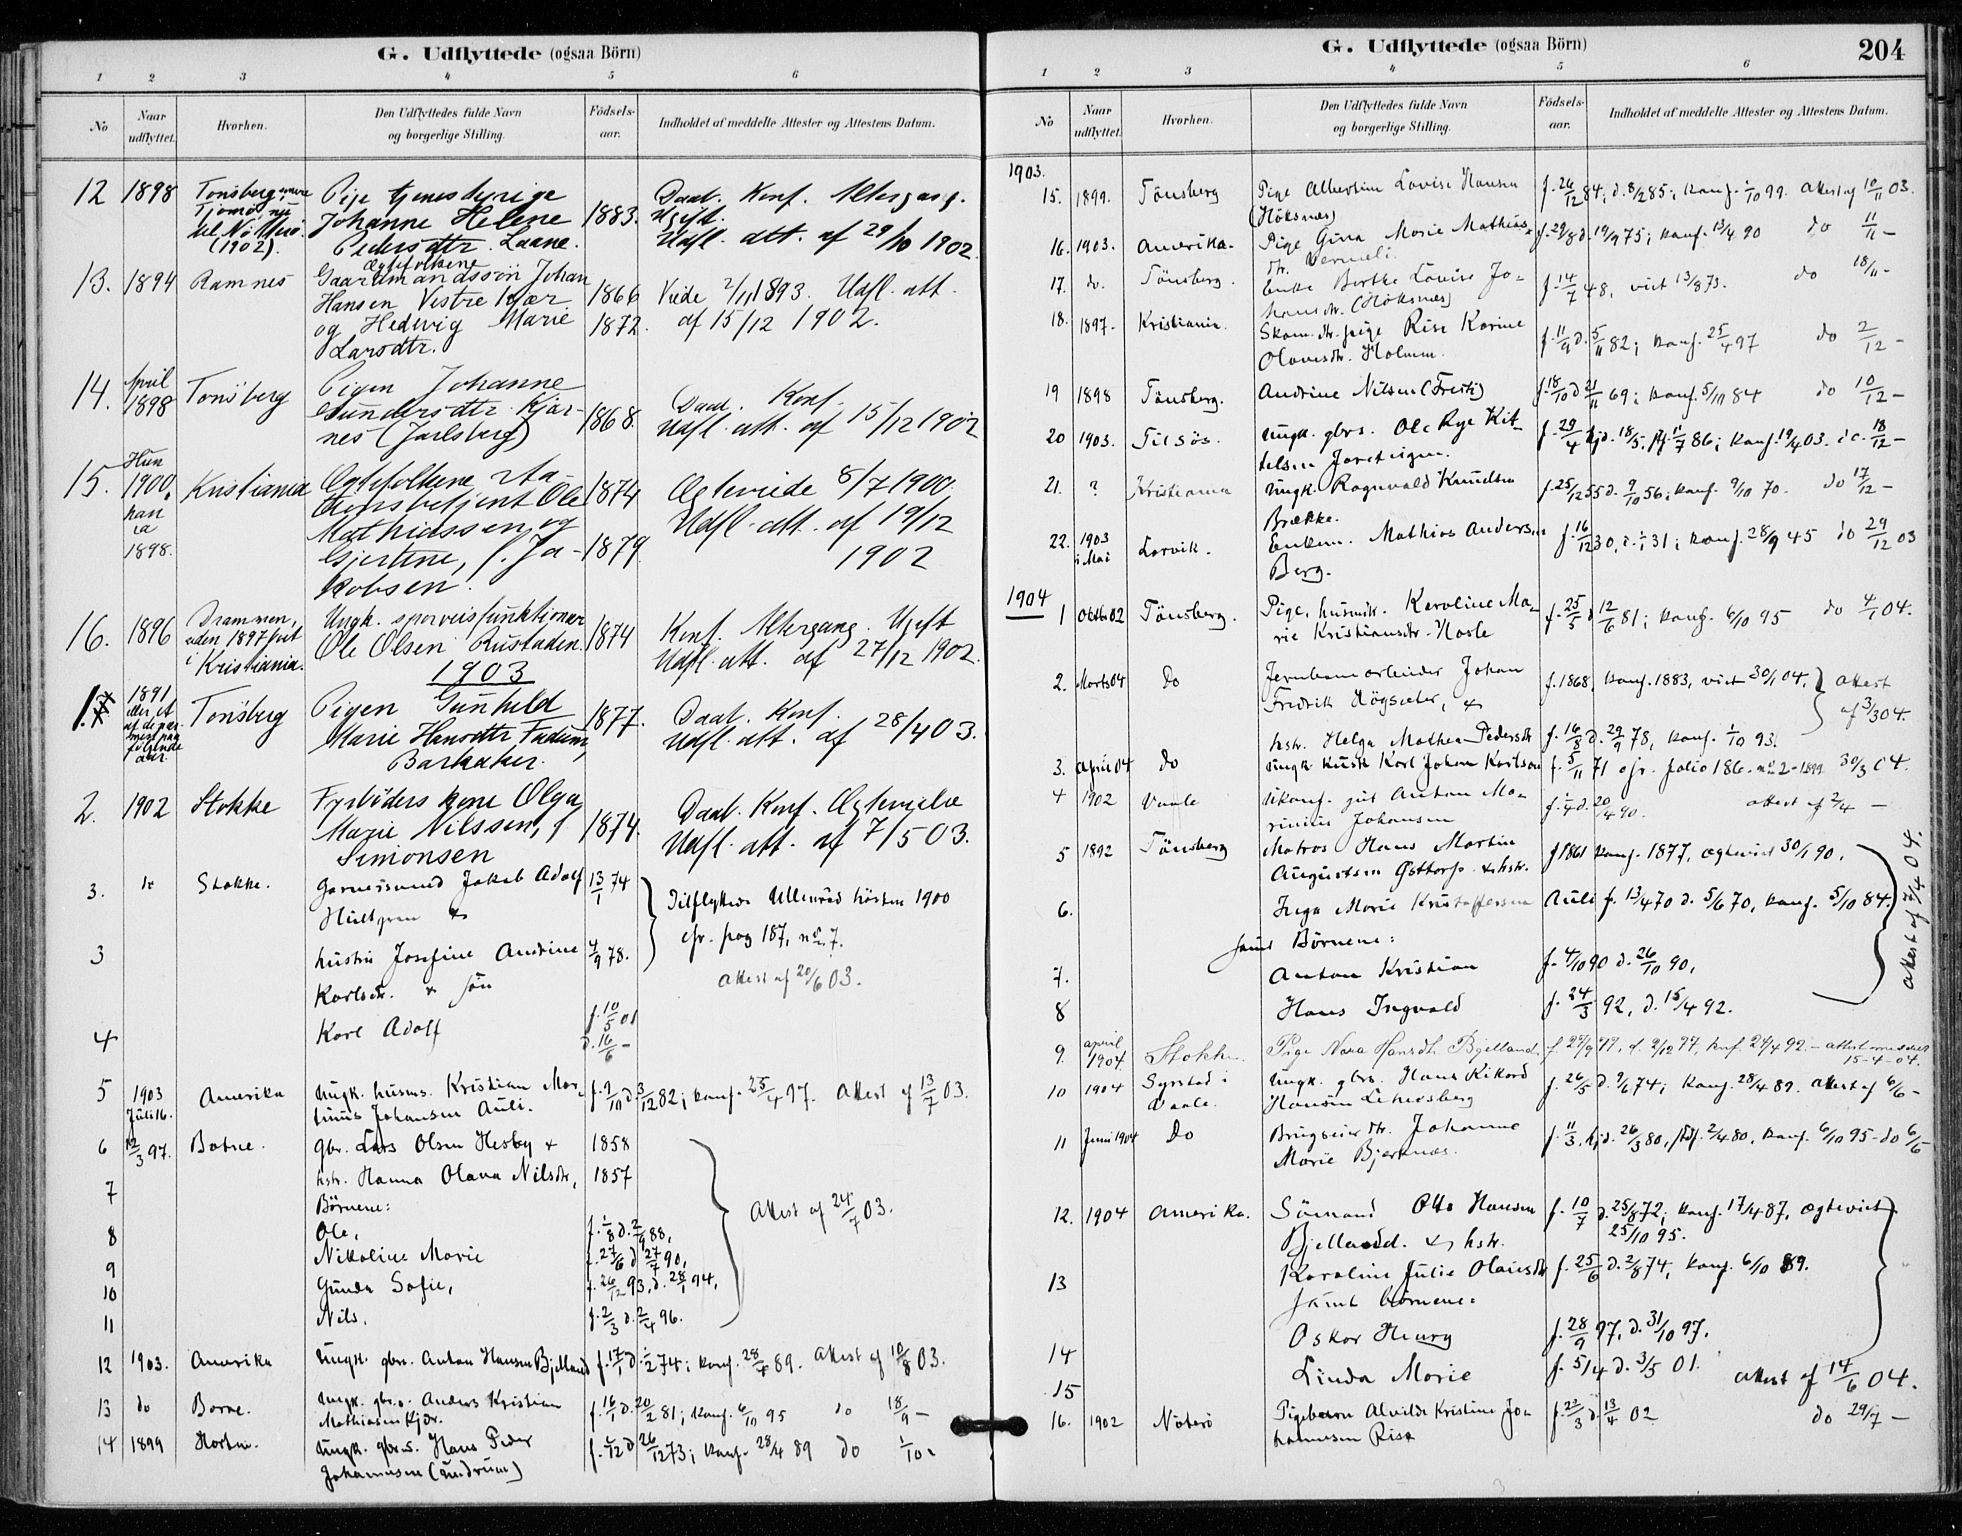 G. Udflyttede (ogsaa Börn)
1 2 3 4 5 6
No Naar udflyttet. Hvorhen. Den Udflyttedes fulde Navn og borgerlige Stilling. Födsels-aar. Indholdet af meddelte Attester og Attestens Datum.
12 1898 Tönsberg Pige tjenestepige Daab. Konf. Altergang.
Tjømø, nu Johanne Helene 1883. Ugift.
til Nötterö Pedersdtr. Laane. Udfl. att. af 29/10 1902.
(1902).
Ægtefolkene
13. 1894 Ramnes Gaardmandssön Johan
Hansen Vestre Kjær 1866 Viede 2/11 1893. Udfl. att.
og Hedevig Marie 1872. af 15/12 1902.
Larsdtr.
14. April 1898 Tönsberg Pigen Johanne
Gundersdtr. Kjær- 1868. Daab. Konf.
nes (Jarlsberg) Udfl. att. af 15/12 1902
15. Hun 1900, Kristiania Ægtefolkene Sta- 1874 Ægteviede 8/7 1900.
han tionsbetjent Ole Udfl. att. af 19/12
ca Mathiassen og 1902
1898. Gjertine, f. Ja- 1879.
kobsen.
16. 1896 Drammen, Ungk. sporveisfunktionær
siden 1897 Ole Olsen Rustaden. 1874 Konf. Altergang. Ugift
i Kristiania. Udfl. att. af 27/12 1902.
1903
1. 1891 eller et af de nærmest paafølgende aar. Tönsberg Pigen Gunhild 1877. Daab. Konf.
Marie Hansdtr. Fadum, Udfl. att. af 28/4 03.
Barkaker.
2. 1902 Stokke Fyrböders kone Olga Daab. Konf. Ægtevielse
Marie Nilssen, f. 1874. Udfl. att. af 7/5 03.
Simonsen
3. Stokke. Garversvend Jakob Adolf 13/1 74 Tilflyttede Ullensröd hösten 1900
Hultgren & cfr. pag 187, no 7.
3 hustru Josefine Andrine 4/9 78. Attest af 20/6 03.
Karlsdtr. & sön
4 Karl Adolf f. 10/5 01 d. 16/6 –
5 1903 Juli 16. Amerika Ungk. husms. Kristian Mar- f. 2/10 d. 3/12 82; konf. 25/4 97. Attest af 13/7 03.
tinus Johansen Auli.
6 12/3 97. Botne. gbr. Lars Olsen Hesby & 1858
7 hstr. Hanna Olava Nilsdtr, 1857
Börnene: Attest af 24/7 03.
8 Ole, f. 1/8 d. 2/9 88,
9 Nikoline Marie f. 27/6 d. 27/7 90,
10 Gunda Sofie, f. 26/12 93, d. 28/1 94,
11 Nils. f. 2/3 d. 2/4 96.
12 1903. Amerika Ungk. gbrs. Anton Hansen Bjelland f. 17/1 d. 1/2 74; konf. 28/4 89. Attest af 10/8 03.
13 do Borre. Ungk. gbr.s. Anders Kristian f. 16/1 d. 20/2 81; konf. 6/10 95 do 18/9 –
Mathiasen Kjær.
14 1899 Horten. Ungk. gbr.s. Hans Peder f. 2/12 d. 26/12 73; konf. 28/4 89 do 1/10 –
Johannesen (Undrum)
G. Udflyttede (ogsaa Börn) 204
1 2 3 4 5 6
No Naar udflyttet. Hvorhen. Den Udflyttedes fulde Navn og borgerlige Stilling. Födsels-aar. Indholdet af meddelte Attester og Attestens Datum.
1903.
15. 1899. Tönsberg Pige Albertine Lovise Hansen f. 26/12 84; d. 8/2 85; konf. 1/10 99. Attest af 10/11 03.
(Höksnes)
16. 1903. Amerika. Pige Gina Marie Mathias- f. 29/8 d. 19/9 75; konf. 13/4 90 do 11/11 –
dtr. Vermeli.
17. do. Tönsberg. Enke Berthe Lovise Jo- f. 14/7 48, viet 13/8 73. do 18/11 –
hansdtr. (Höksnes)
18. 1897. Kristiania. Skom. dtr. pige Risa Karine f. 11/9 d. 5/11 82; konf. 25/4 97 do 2/12 –
Olavesdtr. Holmen.
19 1898 Tönsberg. Andrine Nilsen (Fresti) f. 18/10 d. 21/11 69; konf. 5/10 84 do 10/12 –
20 1903. Tilsös. Ungk. gbrs. Ole Rye Kit- f. 29/4 hjd. 18/5. 11/7 86; konf. 19/4 03. do. 18/12 –
telsen
21. ? Kristiania Ungk. Ragnvald Knudsen f. 25/12 55 d. 9/10 56; konf. 9/10 70. do 17/12 –
Brække.
22. 1903 i Mai Larvik. Enkem. Mathias Andersen f. 16/12 30, d. 1/1 31; konf. 28/9 45 do 29/12 03
Berg.
1904
1 Oktb 02 Tönsberg. Pige, husmdtr. Karoline Ma- f. 25/5 d. 12/6 81; konf. 6/10 95 do 4/1 04.
rie Kristiansdtr. Hasle
2. Marts 04 do Jernbanearbeider Johan f. 1868, konf. 1883, viet 30/1 04. Attest
Fredrik Högsæter, & af 3/3 04.
hstr. Helga Mathea Pedersdtr f. 16/8 d. 29/9 78, konf. 1/10 93.
3. April 04 do Ungk. Kusk Karl Johan Karlsen f. 5/11 71 cfr. folio 186. no 2 - 1899 30/3 04.
4 1902 Vaale Ukonf. gut Anton Ma- f. 1/4 d. 20/4 90. attest af 2/4 –
rinius Johansen
5 1892 Tönsberg Matros Hans Martin f 1861 konf. 1877, ægteviet 30/1 90.
Augustsen Østtorp & hstr.
6. Inga Marie Kristoffersen Auli f. 13/4 70 d. 5/6 70, konf. 5/10 84. Attest af 7/4 04.
samt Börnene:
7. Anton Kristian f. 4/10 90 d. 26/10 90,
8 Hans Ingvald f. 24/3 92, d. 15/4 92.
9. april 1904 Stokke. Pige Nora Hansdtr. Bjelland. f. 29/9 77, d. 2/12 77, konf. 24/4 92. – 15-4-04.
10 1904 Syrstad i Vaale. Ungk. gbrs. Hans Rikard f. 26/5 d. 9/6 74; konf. 28/4 89. Attest af 6/6 –
Hansen Lehersberg
11 Juni 1904 do Brugseier dtr. Johanne f. 11/3. hjd. 26/3 80, stdf. 2/4 80, konf. 6/10 95 – do 6/6
Marie Bjerknæs.
12. 1904 Amerika. Sömand Otto Hansen f. 10/7 d. 25/8 72; konf. 17/4 87, ægteviet
Bjelland. & hstr. 25/10 95.
13 Karoline Julie Olausdtr f. 25/6 d. 2/8 74, konf. 6/10 89.
samt börnene:
14 Oskar Henry f. 28/9 97, d. 31/10 97.
15 Linda Marie f. 5/4 d. 3/5 01. Attest af 14/6 04.
16. 1902 Nöterö Pigebarn Alvilde Kristine Jo- f. 22/3 d. 13/4 02 do 29/7 –
hannesen Risø